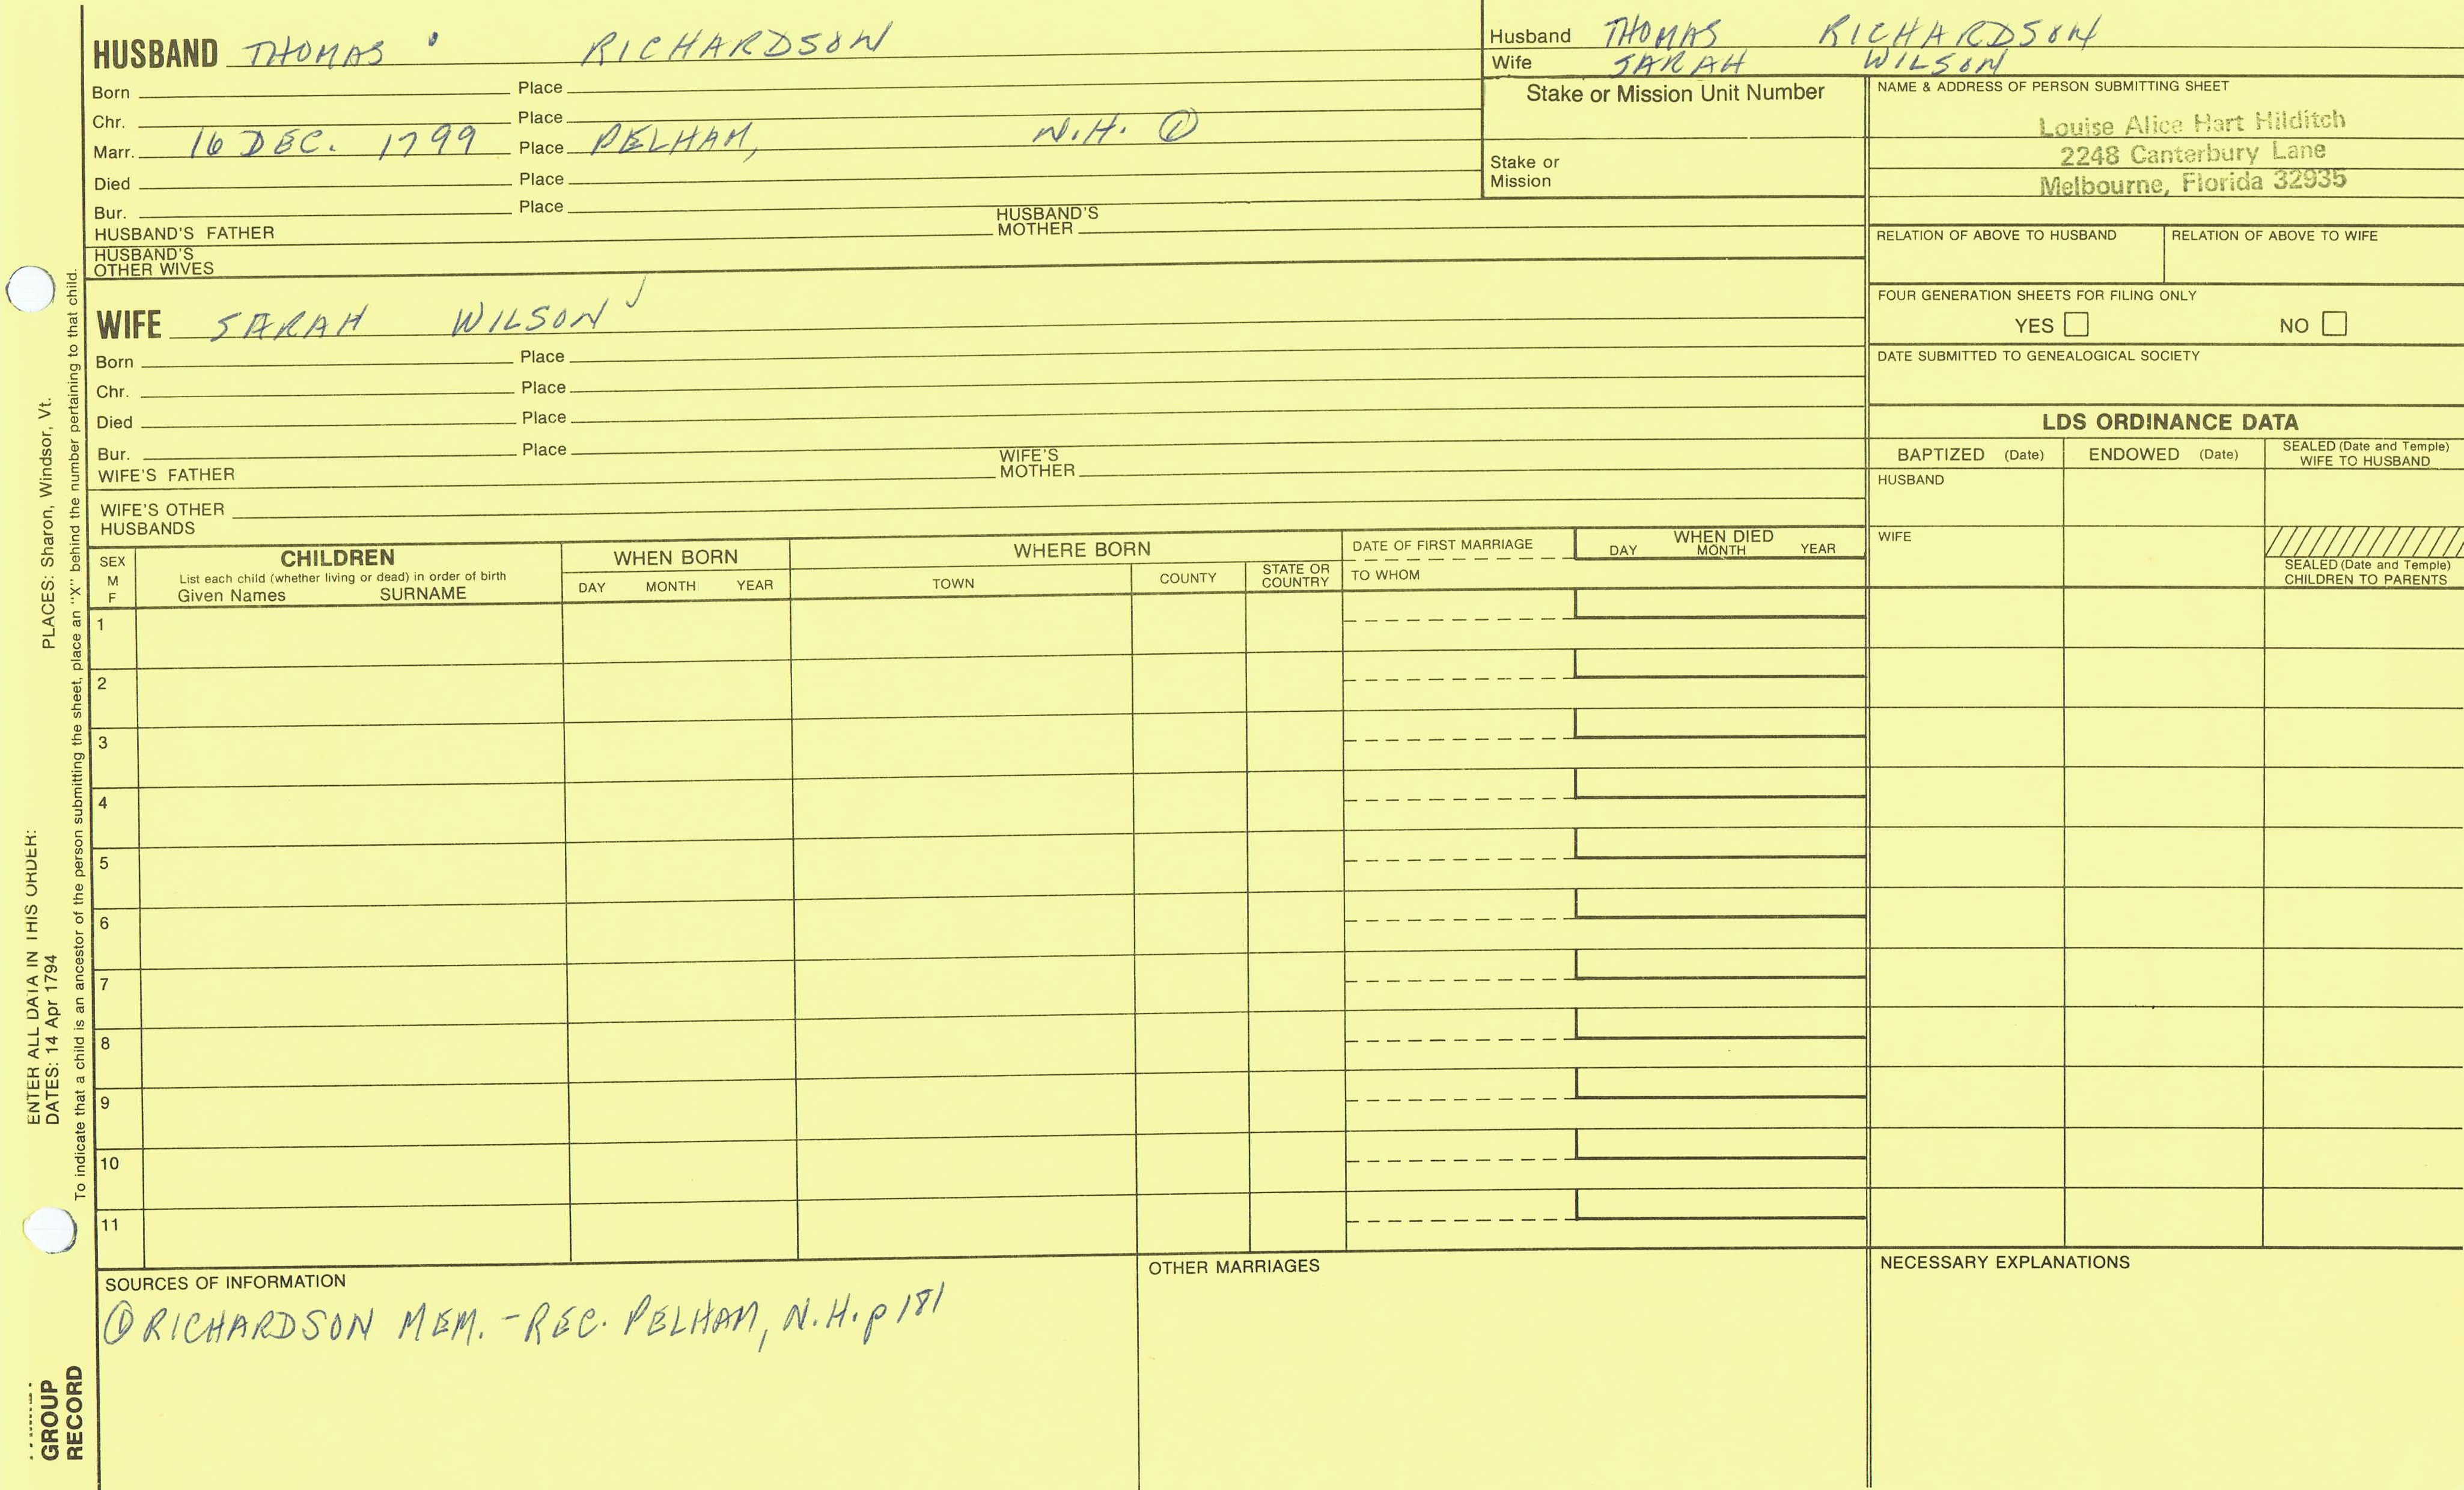 HUSBAND THOMAS RICHARDSON
Born Place
Chr. Place
Marr. 16 DEC. 1799 Place PELHAM, N.H. ①
Died Place
Bur. Place
HUSBAND'S FATHER HUSBAND'S MOTHER
HUSBAND'S OTHER WIVES
WIFE SARAH WILSON
Born Place
Chr. Place
Died Place
Bur. Place
WIFE'S FATHER WIFE'S MOTHER
WIFE'S OTHER HUSBANDS
Husband THOMAS RICHARDSON
Wife SARAH WILSON
Stake or Mission Unit Number
Stake or Mission
NAME & ADDRESS OF PERSON SUBMITTING SHEET
Louise Alice Hart Hilditch
2248 Canterbury Lane
Melbourne, Florida 32935
RELATION OF ABOVE TO HUSBAND RELATION OF ABOVE TO WIFE
FOUR GENERATION SHEETS FOR FILING ONLY
YES NO
DATE SUBMITTED TO GENEALOGICAL SOCIETY
LDS ORDINANCE DATA
BAPTIZED (Date) ENDOWED (Date) SEALED (Date and Temple) WIFE TO HUSBAND
HUSBAND
WIFE
SEALED (Date and Temple) CHILDREN TO PARENTS
SEX M F
CHILDREN
List each child (whether living or dead) in order of birth
Given Names SURNAME
WHEN BORN
DAY MONTH YEAR
WHERE BORN
TOWN COUNTY STATE OR COUNTRY
DATE OF FIRST MARRIAGE
TO WHOM
WHEN DIED
DAY MONTH YEAR
1
2
3
4
5
6
7
8
9
10
11
SOURCES OF INFORMATION
① RICHARDSON MEM. - REC. PELHAM, N.H. p 181
OTHER MARRIAGES
NECESSARY EXPLANATIONS
ENTER ALL DATA IN THIS ORDER:
DATES: 14 Apr 1794 PLACES: Sharon, Windsor, Vt.
To indicate that a child is an ancestor of the person submitting the sheet, place an "X" behind the number pertaining to that child.
GROUP
RECORD